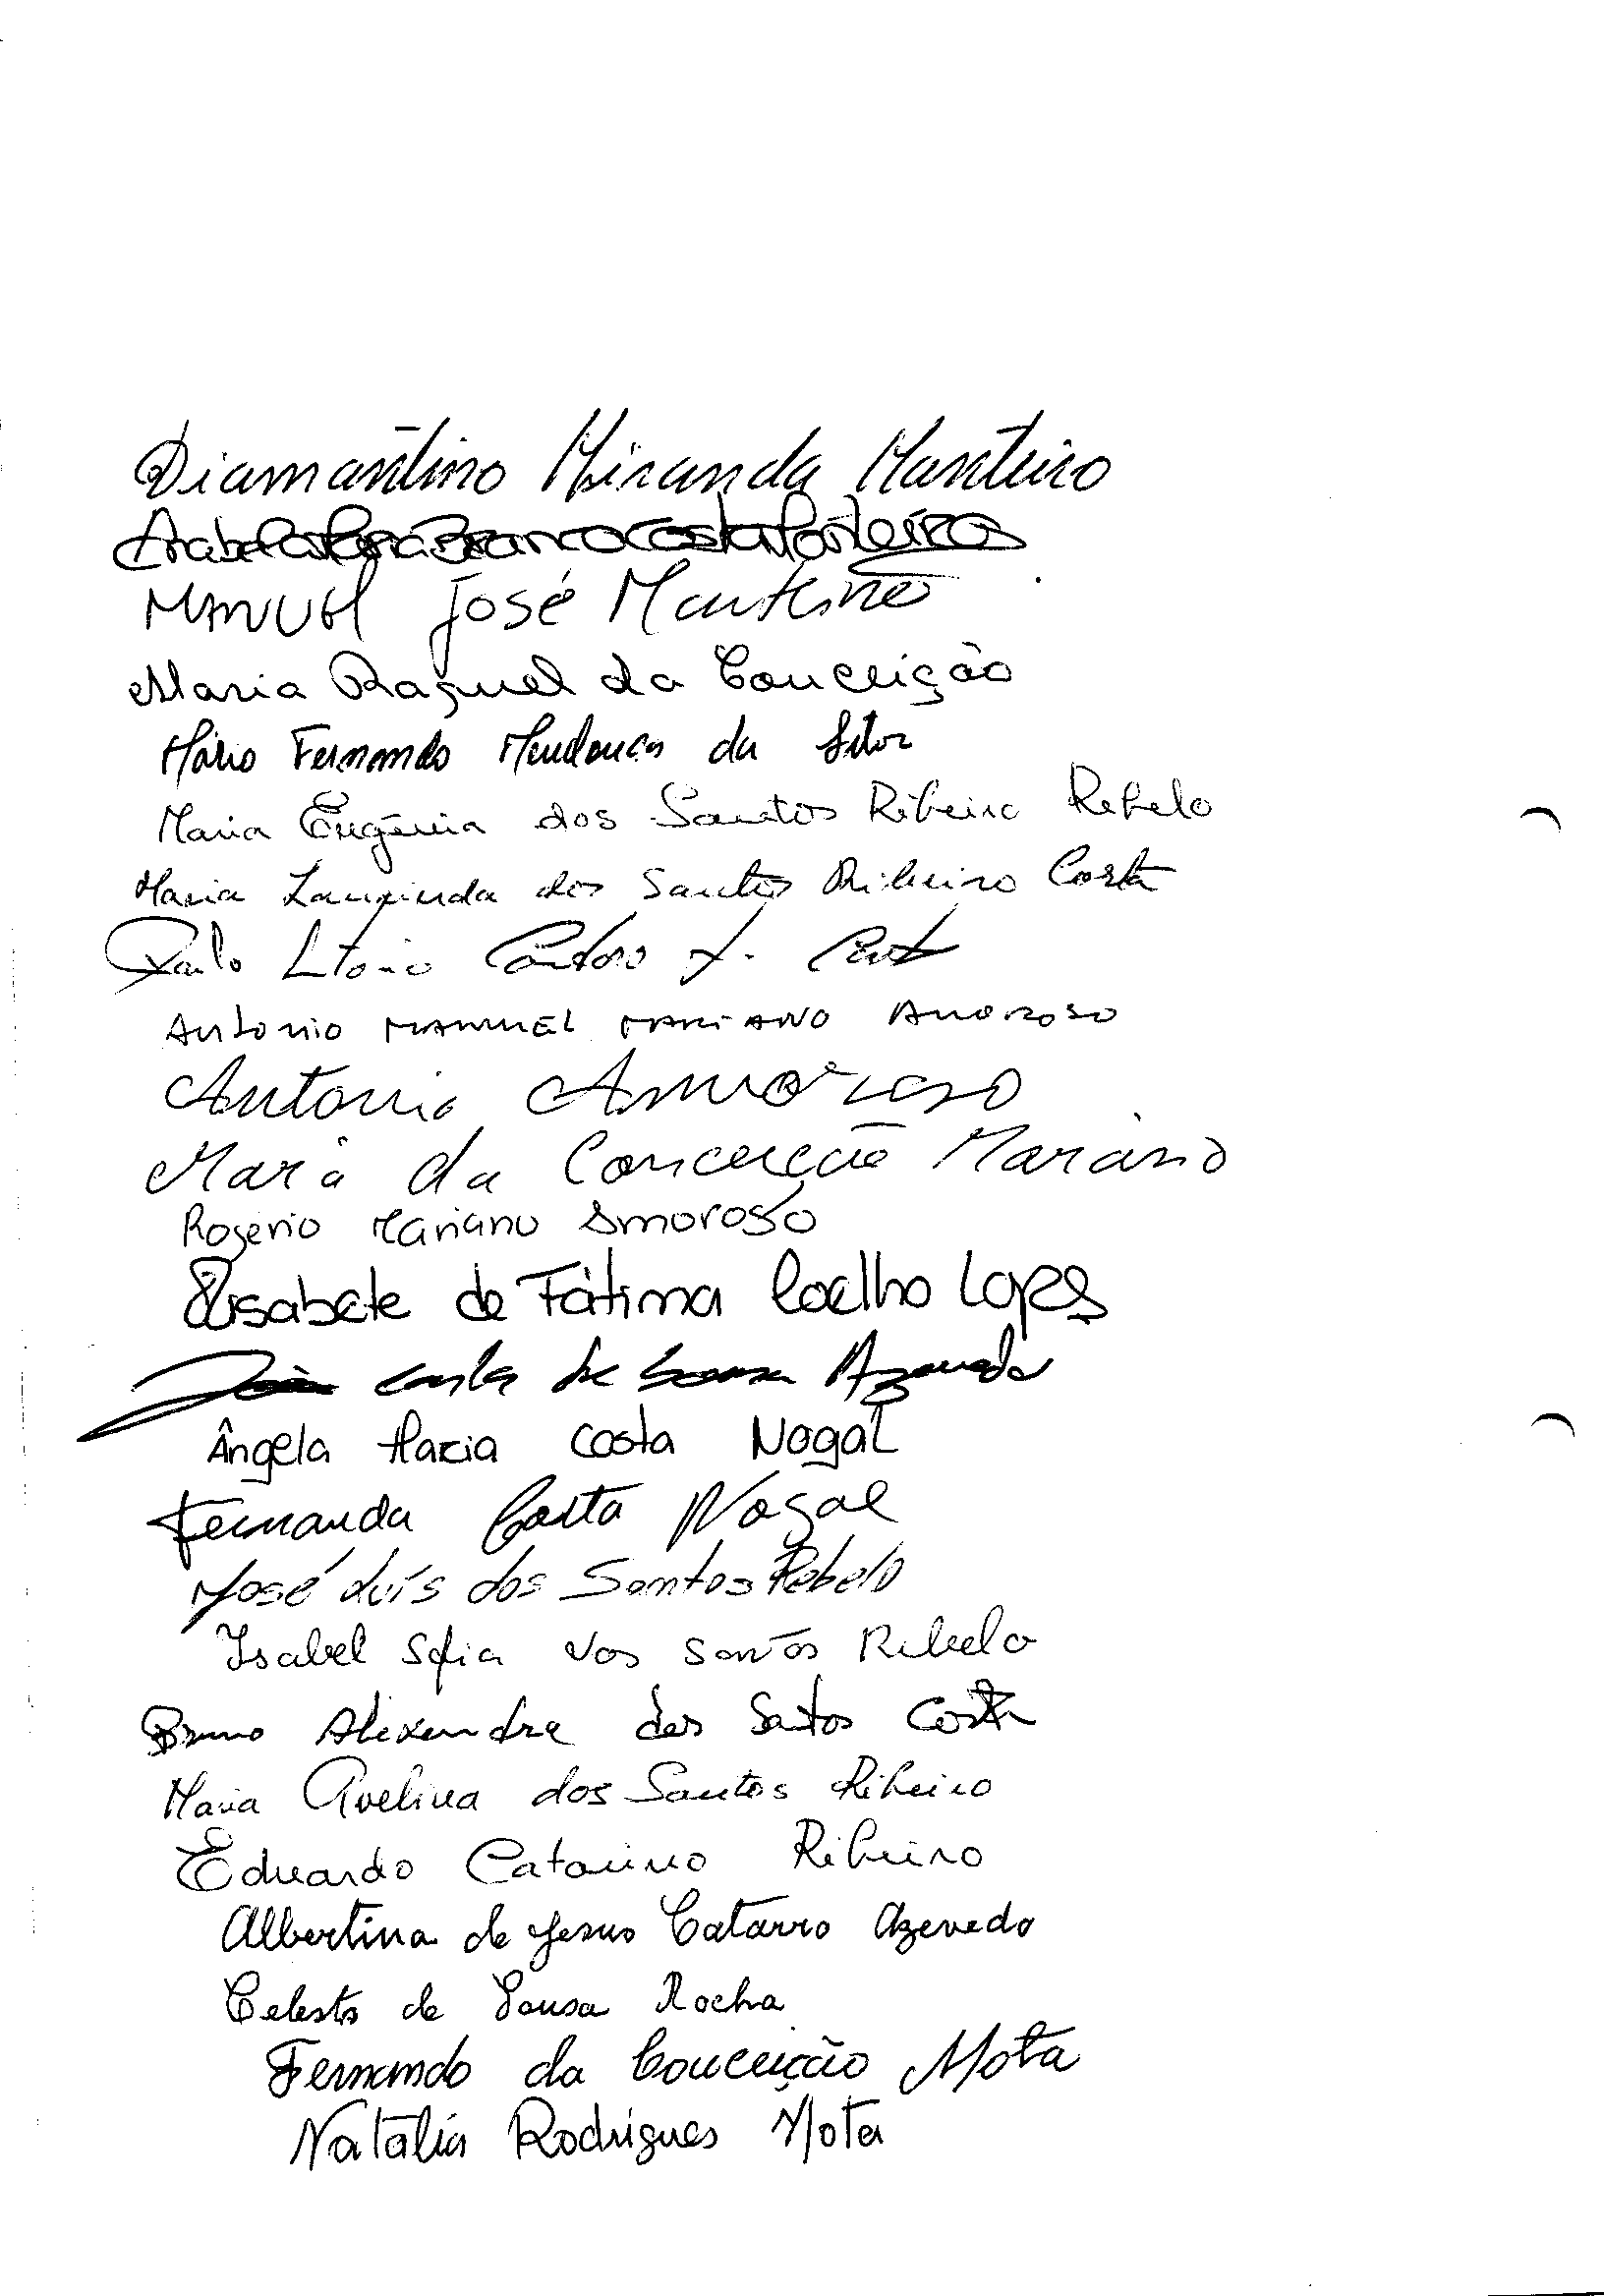 Diamantino Miranda Manteiro
Manuel José Monteiro
Maria Raquel da Conceição
Mário Fernando Mendonça da Silva
Maria Eugénia dos Santos Ribeiro Rebelo
Maria Laurinda dos Santos Ribeiro Costa
Paulo
Antonio Manuel Mariano Amoroso
Antonio Amoroso
Maria da Conceição Mariano
Rogério Mariano Amoroso
Elisabete de Fátima Coelho Lopes
Carlos de Sousa Azevedo
Ângela Maria Costa Nogal
Fernanda Costa Nogal
José Luís dos Santos Rebelo
Isabel Sofia dos Santos Rebelo
Bruno Alexandre dos Santos Costa
Maria Avelina dos Santos Ribeiro
Eduardo Catarino Ribeiro
Albertina de Jesus Catarro Azevedo
Celeste de Sousa Rocha
Fernando da Conceição Mota
Natália Rodrigues Mota